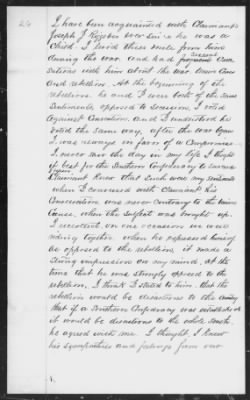 I have been acquainted with Claimant
Joseph J. ever since he was a
child. I lived three miles from him
during the war. And had frequent Conver
sations with him about the war
and rebellion. At the beginning of the
rebellion he and I were both of the same
Sentiments, opposed to secession, I voted
against Convention and I understood he
voted the same way, after the war began
I was always in favor of a Compromise.
I never saw the day in my life, I thought
it best for the Southern Confederacy to succeed
Claimant knew that such was my sentiments
when I conversed with Claimant his
Conversation was never contrary to the Union
Cause, when the subject was brought up.
I recollect on one occasion we were
riding together when he expressed himself
as opposed to the rebellion, it made a
strong impression on my mind, at the
time that he was strongly opposed to the
rebellion, I think I stated to him that the
rebellion would be disastrous to the country
that if a Southern Confederacy was established
it would be disastrous to the whole South.
he agreed with me. I thought I knew
his sympathies and feelings from our